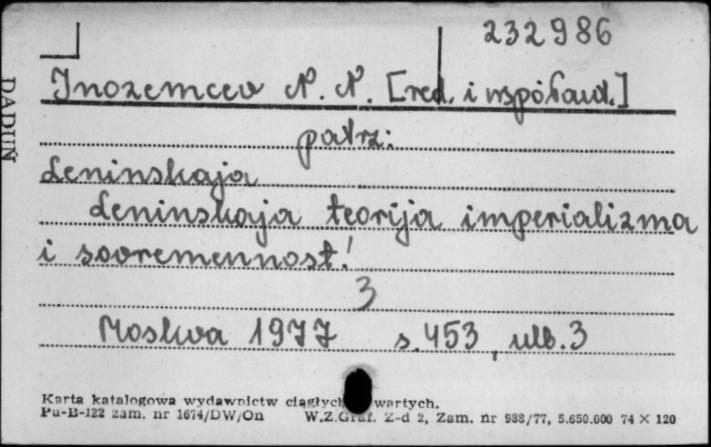 232986
Inozemcev N. N. [red. i współaut.]
patrz:
Leninskaja
Leninskaja teorija imperializma
i sovremennost'
3
Moskva 1977 s. 453, ulb. 3
DADUŃ
Karta katalogowa wydawnictw ciągłych wartych.
Pu-B-122 zam. nr 1674/DW/On W.Z.Graf. Z-d 2, Zam. nr 988/77, 5.650.000 74 × 120